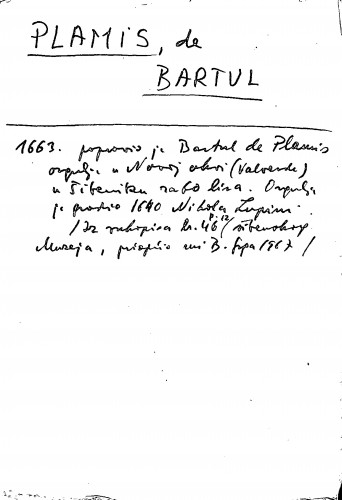 PLAMIS, de
BARTUL
1663. popravio je Bartul de Plamis
orgulje u Novoj crkvi (Valverde)
u Šibeniku za 60 lira. Orgulje
je gradio 1640 Nikola
/Iz rukopisa br. 46/ šibenskog
Muzeja, mi B. 1967/